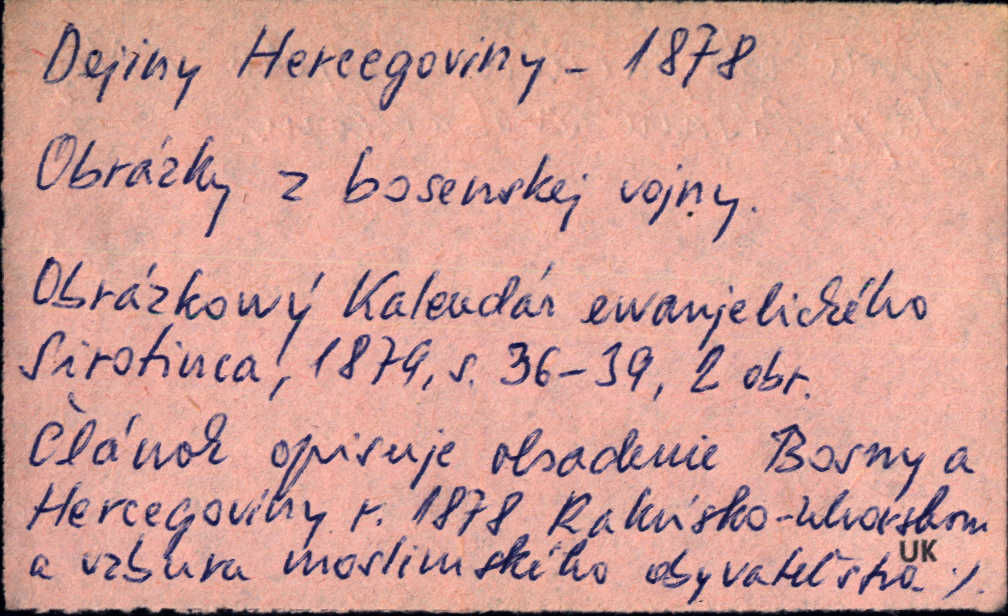 Dejiny Hercegoviny - 1878
Obrázky z bosenskej vojny.
Obrázkowý Kalendár ewanjelického
Sirotinca, 1879, s. 36-39, 2 obr.
Článok opisuje obsadenie Bosny a
Hercegoviny r. 1878 Rakúsko-Uhorskom
a vzbura moslimského obyvateľstva /.
UK